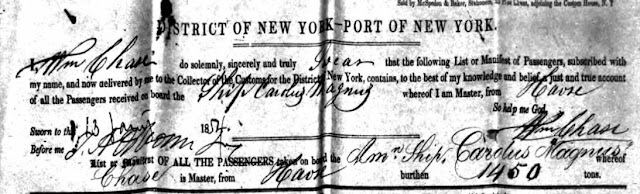 Sold by McSpedon & Baker, Stationers, Pine, adjoining the Custom House, N. Y
DISTRICT OF NEW YORK—PORT OF NEW YORK.
I Wm Chase do solemnly, sincerely and truly Swear that the following List or Manifest of Passengers, subscribed with
my name, and now delivered by me to the Collector of the Customs for the District of New York, contains, to the best of my knowledge and belief, a just and true account
of all the Passengers received on board the Ship Carolus Magnus whereof I am Master, from Havre
So help me God,
Sworn to the 185 Wm Chase
Before me
List or Manifest OF ALL THE PASSENGERS taken on board the Amn Ship, Carolus Magnus whereof
Chase is Master, from Havre burthen 1450 tons.